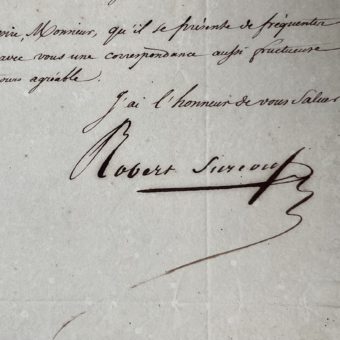 Monsieur, qu'il se présente de fréquenter
avec vous une correspondance aussi fructueuse
agréable.
J'ai l'honneur de vous Saluer
Robert Surcouf